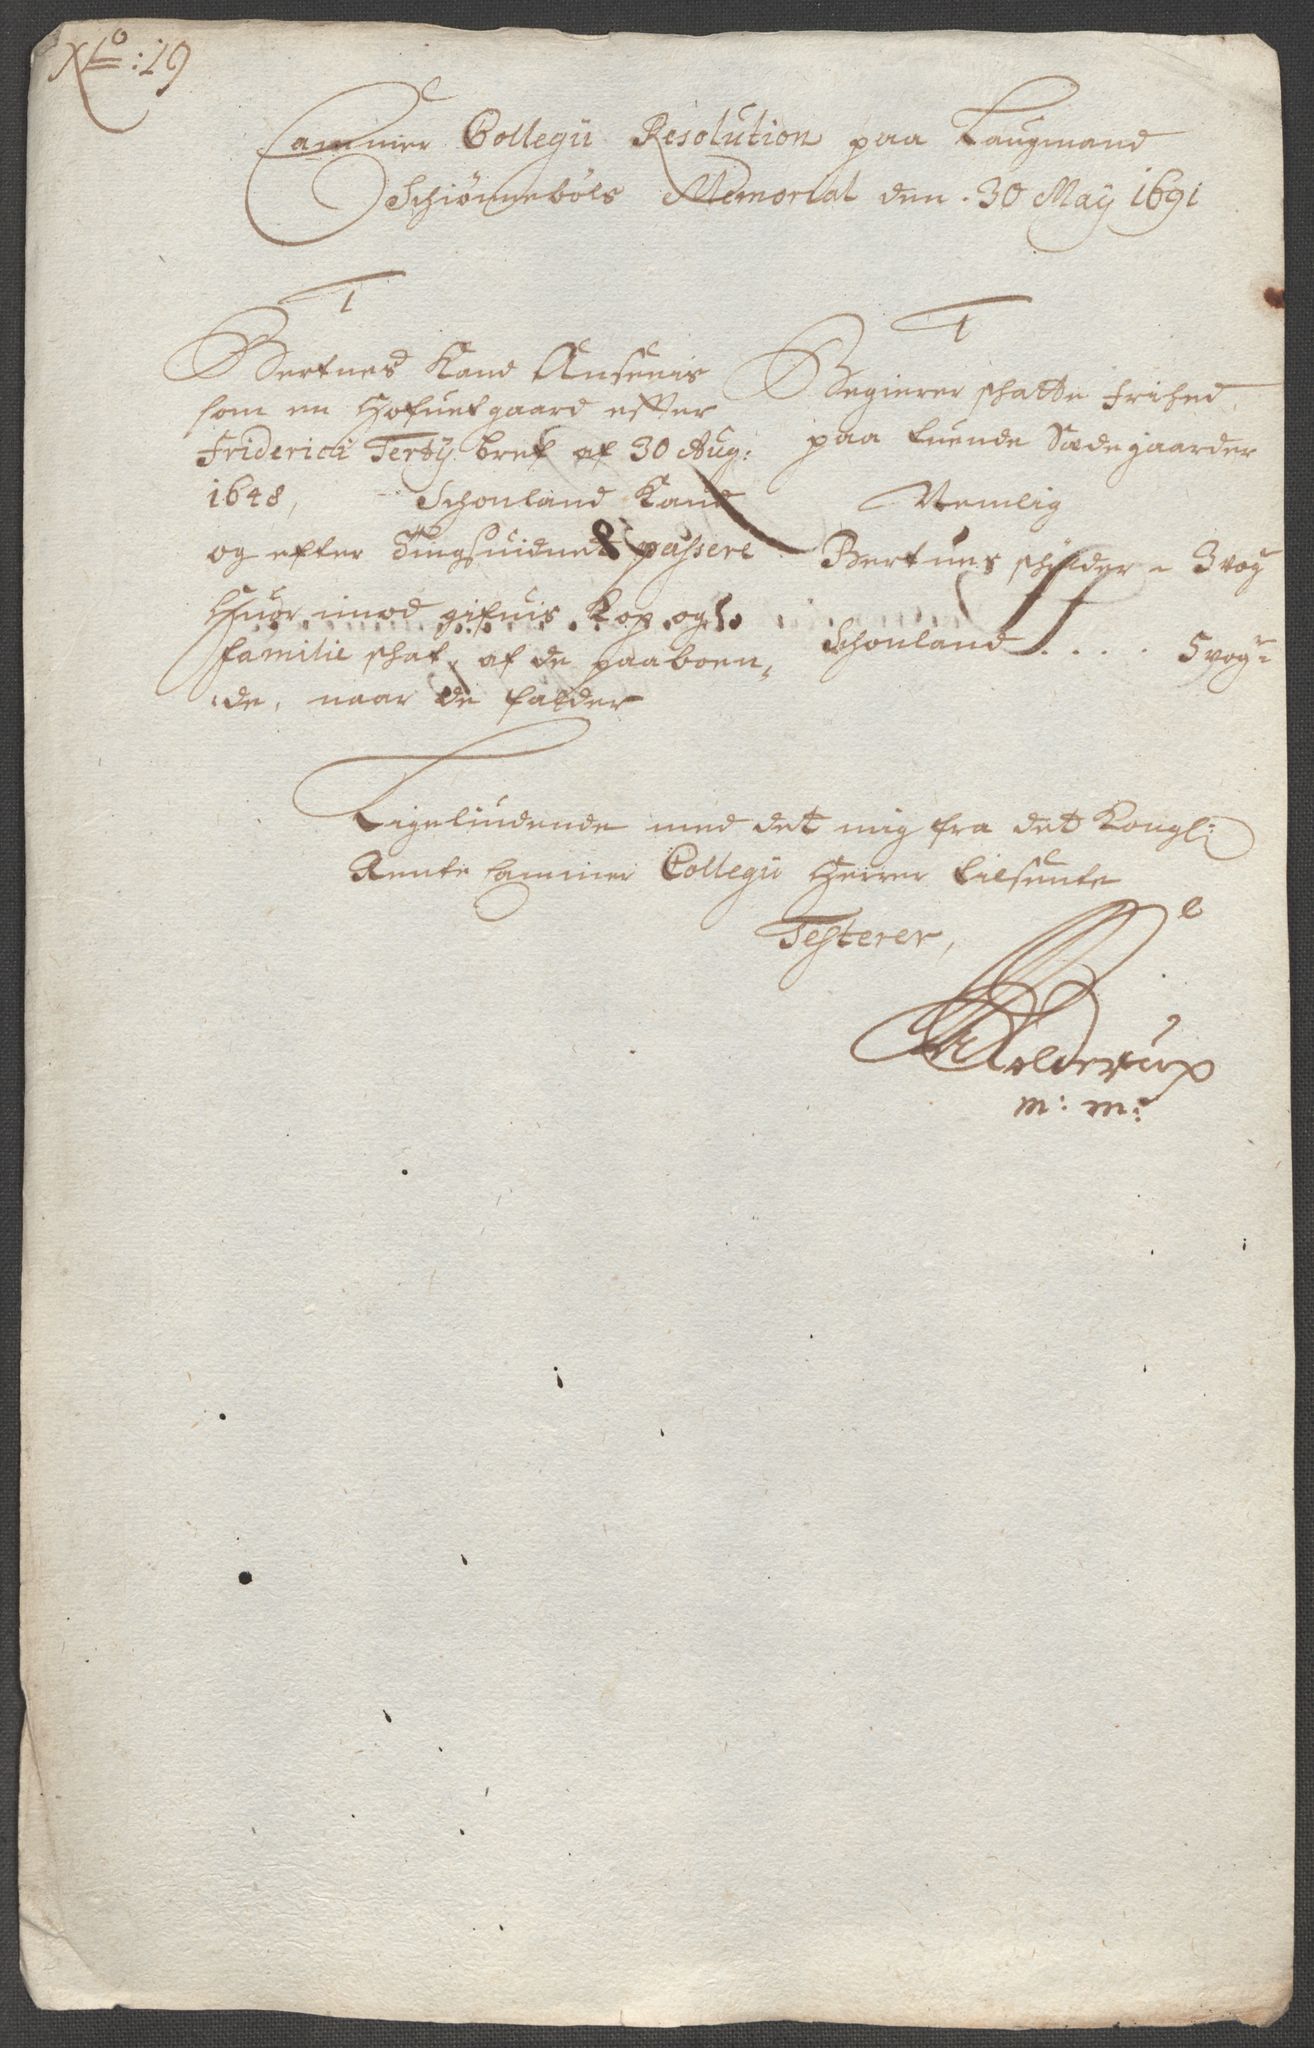 No: 19
Cammer Collegii Resolution paa Laugmand
Schiønnebøls Memorial den 30 May 1691
1
Bertnes Kand Ansees
som en Hofuetgaard efter
Friderici Tertij bref af 30 Aug:
1648, Schonland Kand
og efter Tingsuidnet passere
Huor imod gifuis Kop og
familie skat, af de paaboen-
de, naar de falder
1
Begierer skatte frihed
paa tuende Sædegaarder
Nemlig
Bertnes skylder - 3 vog
Schonland . . . . 5 vog
Ligeliudende med det mig fra det Kongl:
Rente Cammer Collegii Herrer tilsente
Testerer,
Kolderup
m: m: